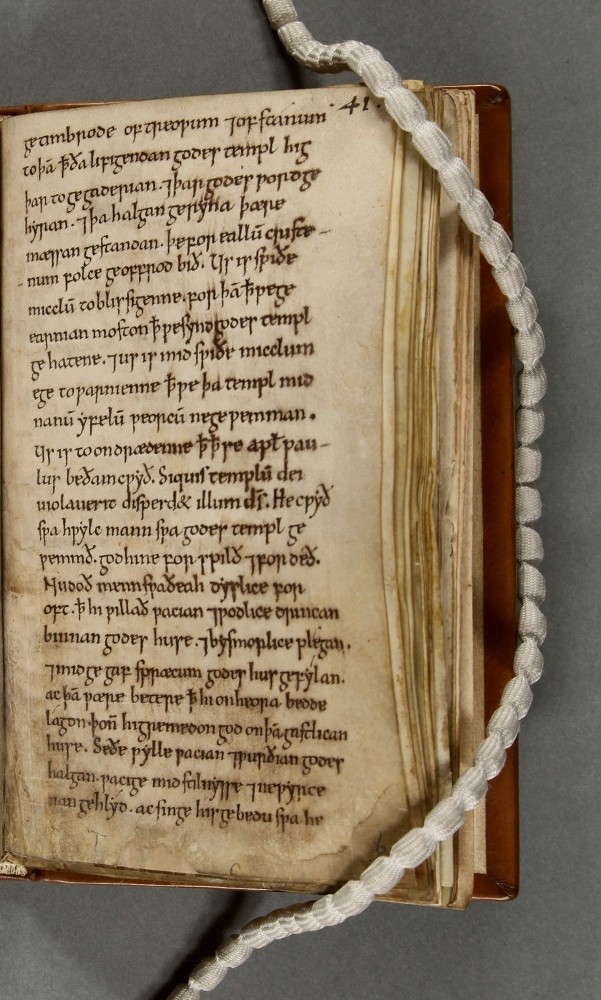 41.
getimbrode of treoƿum ⁊ of stanum
to þā ꝥ ða lifigendan godes templ hig
þar togegaderian. ⁊ þar godes ƿord ge
hyrian. ⁊ þa halgan geryna þære
mæssan gestandan. þe for eallū criste-
num folce geoffrod bið. Us is sƿiðe
micclū to blissigenne. for þā ꝥ ƿe ge
earnian moston ꝥ ƿe synd godes templ
ge hatene. ⁊ us is mid sƿiðe micclum
ege to ƿarnienne ꝥ ƿe þa templ mid
nanū yfelū ƿeorcū ne geƿemman.
Us is to ondrædenne ꝥ ꝥ se apl̄ pau-
lus be ðam cƿyð. Siquis templū dei
uiolauerit disperd& illum dī. He cƿyð
sƿa hƿylc mann sƿa godes templ ge
ƿemmð. god hine forspilð ⁊ fordeð.
Nu doð menn sƿa ðeah dyslice for
oft. ꝥ hi ƿillað ƿacian ⁊ ƿodlice drincan
binnan godes huse. ⁊ bysmorlice plegan.
⁊ mid gegaf spræcum godes hus gefylan.
ac þā ƿære betere ꝥ hi on heora bedde
lagon. þoñ hi gremedon god on þā gastlican
huse. Se ðe ƿylle ƿacian ⁊ ƿurðian godes
halgan. ƿacige mid stilnysse ⁊ ne ƿyrce
nan gehlyd. ac singe his gebedu sƿa he